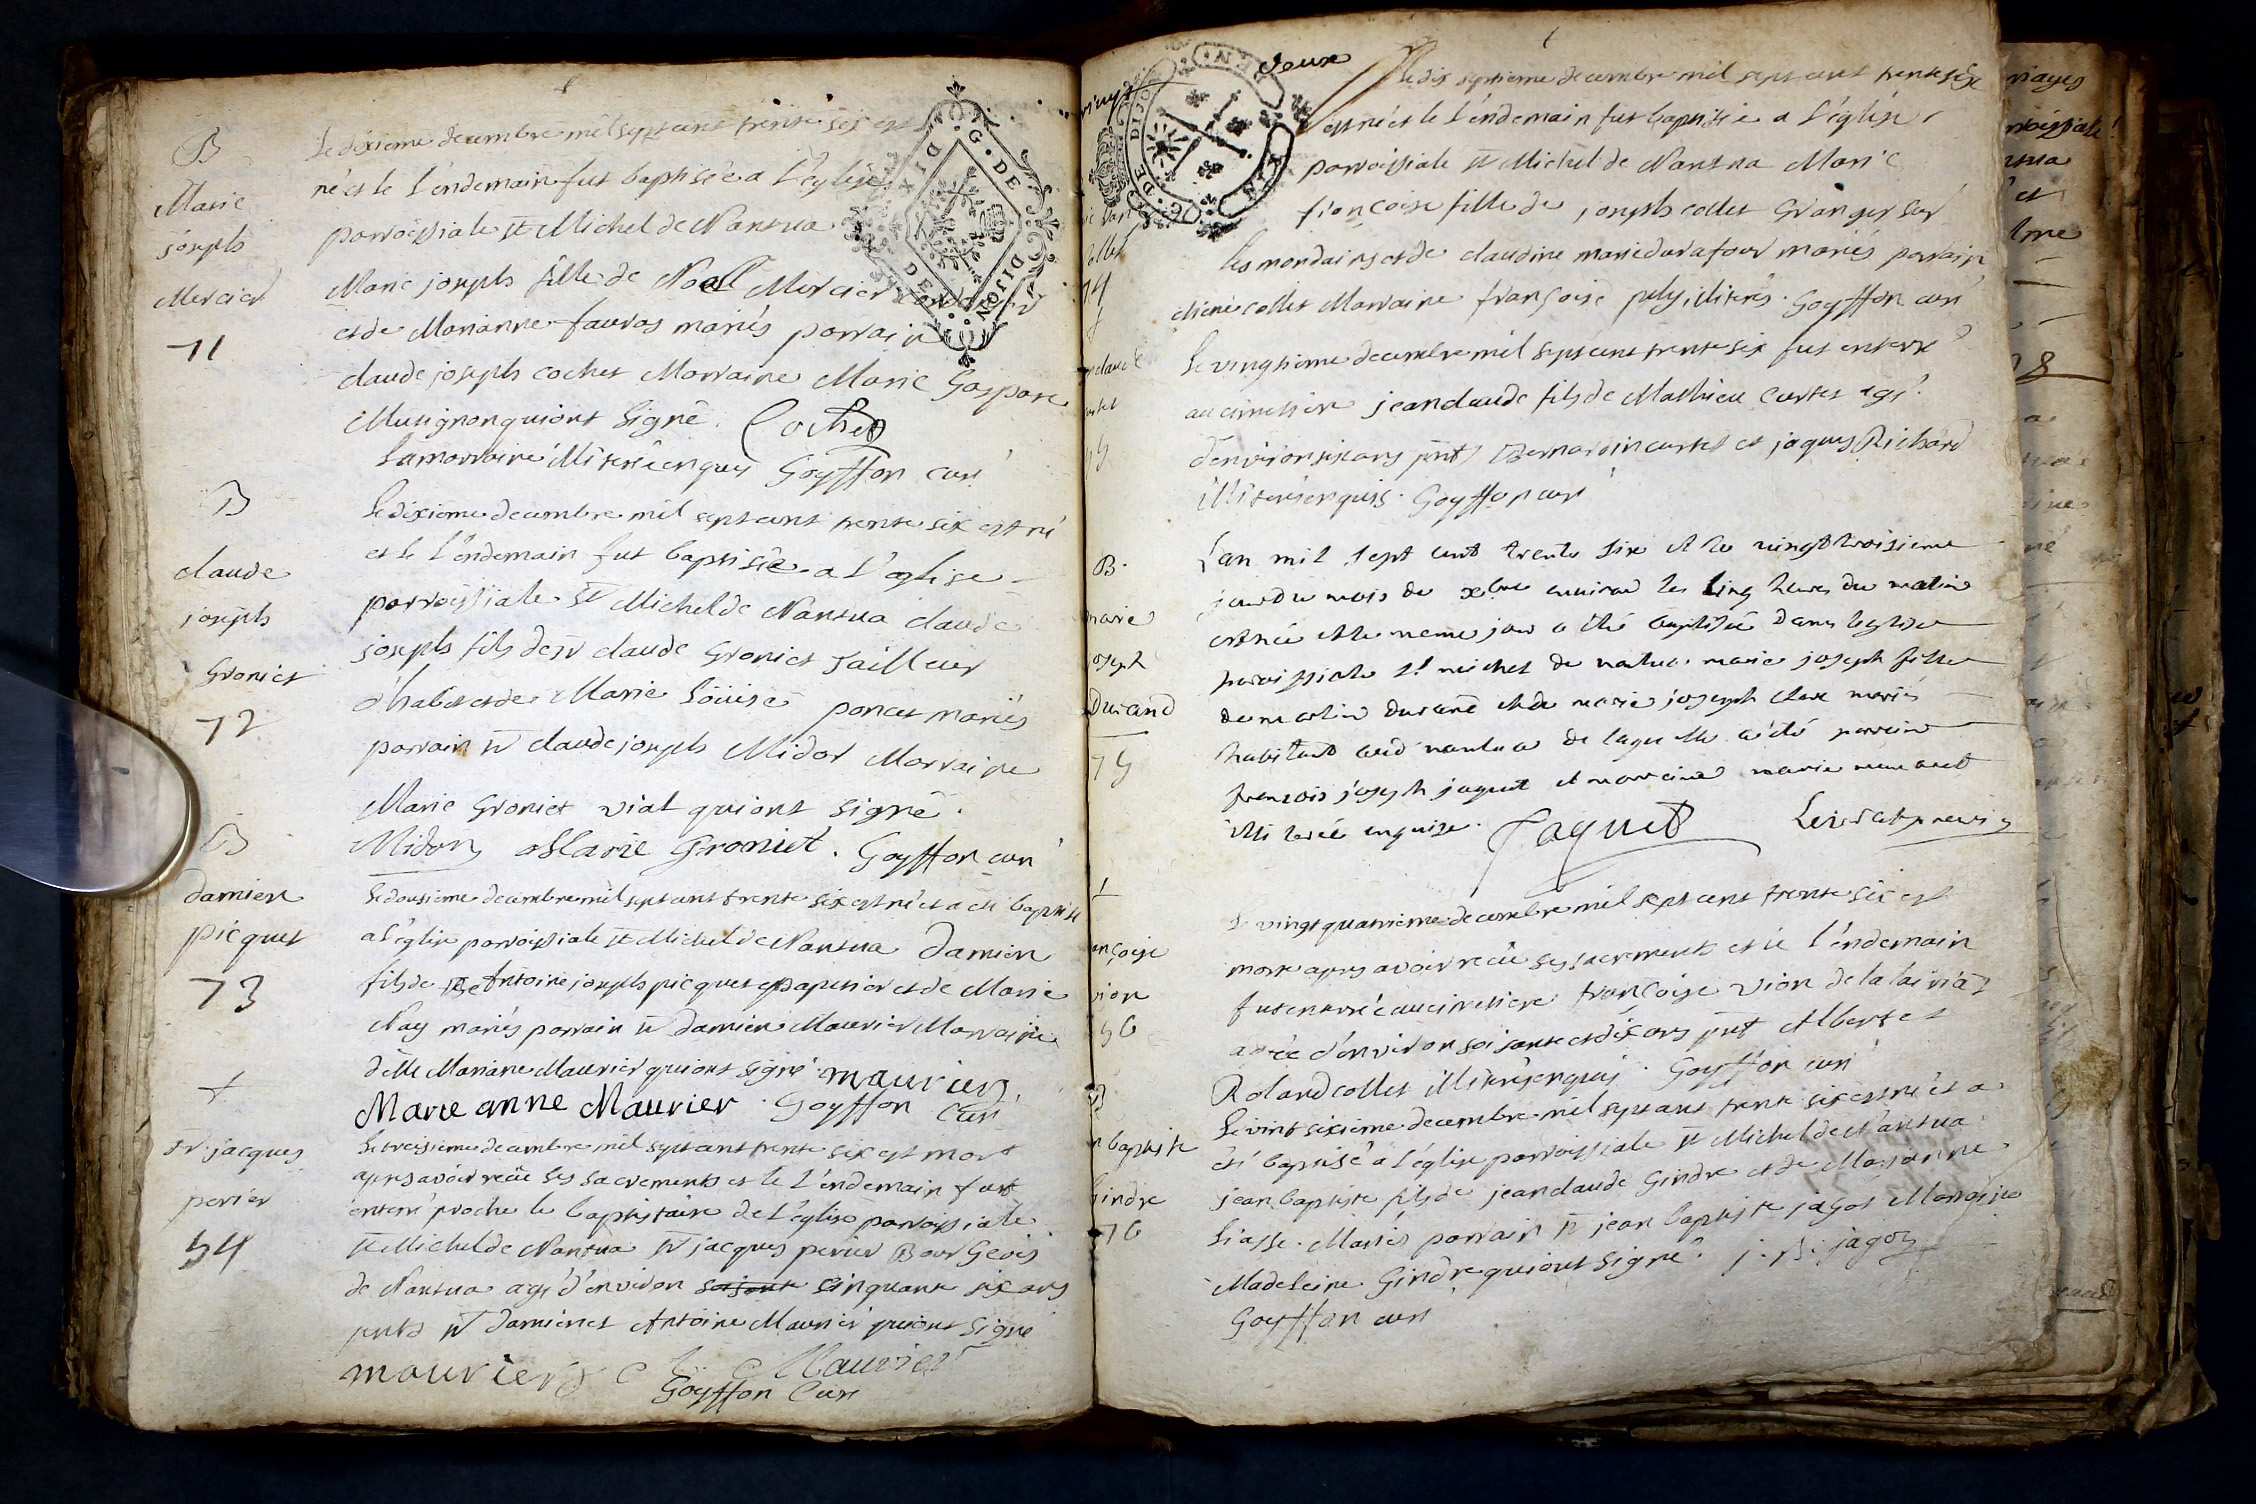 B
Marie
joseph
Mercier
71
Le dixieme decembre mil sept cent trente six est
né et le l'endemain fut baptisée a l'eglise
parroissiale st Michel de Nantua
Marie joseph fille de Noel Mercier
et de Marianne fauras mariés parrain
claude joseph cochet Marraine Marie Gaspare
Musignon qui ont signé. Cochet
la marraine illiterée enquis Goyffon curé
B
claude
joseph
Groniet
72
Le dixieme decembre mil sept cent trente six est né
et le l'endemain fut baptisée a l'eglise
parroissiale st Michel de Nantua claude
joseph fils de sr claude Groniet Tailleur
d'habits et de Marie Loüise poncet mariés
parrain sr claude joseph Midor Marraine
Marie Groniet viat qui ont signé.
Midor Marie Groniet. Goyffon curé
B
damien
picquet
73
Le dousieme decembre mil sept cent trente six est né et a eté baptisé
a l'eglise parroissiale st Michel de Nantua Damien
fils de Antoine joseph picquet papetier et de Marie
Nay mariés parrain sr damien Maurier Marraine
delle Mariane Maurier qui ont signé. maurier
Marie anne Maurier. Goyffon Curé
+
Sr. jacques
perier
54
Le treisieme decembre mil sept cent trente six est mort
apres avoir recüe ses sacrements et le l'endemain fut
enterré proche le baptistaire de l'eglise parroissiale
st Michel de Nantua sr jacques perier Bourgeois
de Nantua agé d'environ soisante cinquante six ans
pnts sr damien et Antoine Maurier qui ont signé
maurier Maurier
Goyffon Curé
deux
vingt
74
Le dix septieme decembre mil sept cent trente six
est né et le l'endemain fut baptisée a l'eglise
parroissiale st Michel de Nantua Marie
françoise fille de joseph collet Granger sur
les mondains et de claudine marie durafour mariés parrain
collet Marraine françoise illiterés. Goyffon curé
Le vingtieme decembre mil sept cent trente six fut enterré
au cimetiere jean claude fils de Mathieu curtet agé
d'environ six ans pnts Bernardin curtet et jaques Richard
illiterés enquis. Goyffon curé
B.
marie
joseph
Durand
75
L'an mil sept cent trente six et le vingt troisieme
jour du mois de xbre environ les cinq heures du matin
est née et le meme jour a été baptisée dans leglise
paroissiale st michel de nantua marie joseph fille
de martin durand et de marie joseph clere mariés
habitant aud nantua de laquelle a été parrain
francois joseph jaquet et marraine marie
illiterée enquise. Jaquet
+
ançoise
vion
56
Le vingt quatrieme decembre mil sept cent trente six est
morte apres avoir recüe ses sacrements et le l'endemain
fut enterrée au cimetiere françoise vion de la
agée d'environ soisante et dix ans pnt Albert et
Roland collet illiterés enquis. Goyffon curé
B
n baptiste
Gindre
76
Le vint sixieme decembre mil sept cent trente six est né et a
été baptisé a l'eglise parroissiale st Michel de Nantua
jean baptiste fils de jean claude Gindre et de Marianne
Liasse. Mariés parrain sr jean baptiste jagot Marraine
Madeleine Gindre qui ont signé. j. B. jagot
Goyffon curé